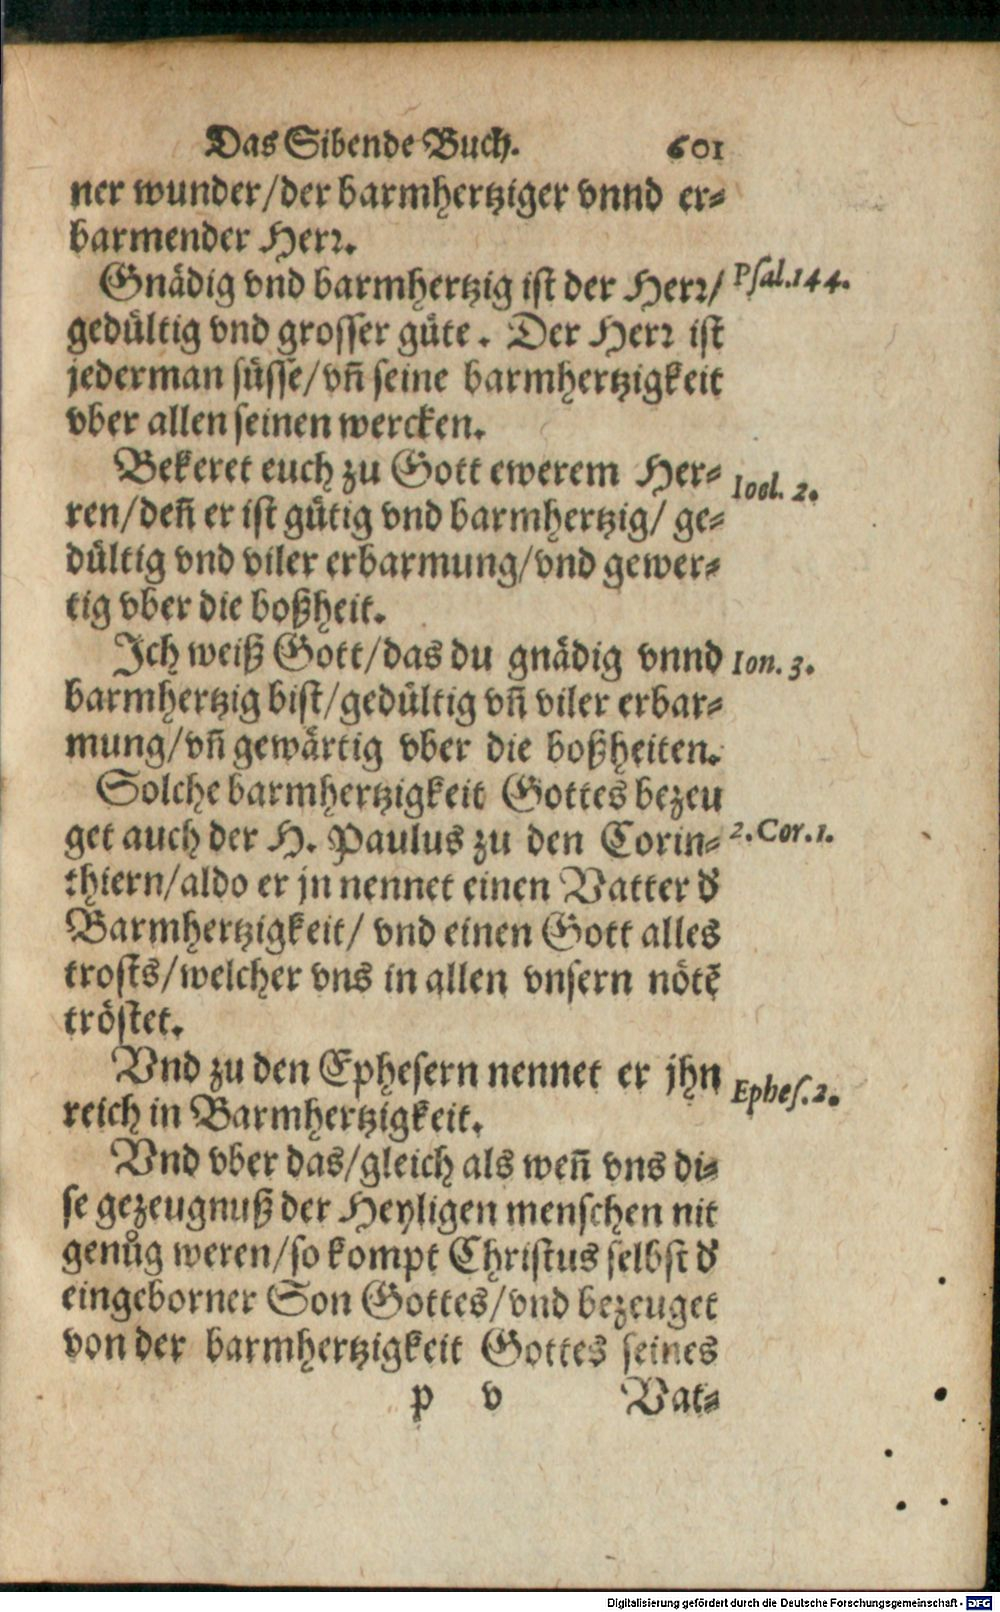 Das Sibende Buch. 601
ner wunder/der barmhertziger vnnd er⸗
barmender Herr.
Gnädig vnd barmhertzig ist der Herr/ Psal.144.
gedültig vnd grosser güte. Der Herr ist
jederman süsse/vñ seine barmhertzigkeit
vber allen seinen wercken.
Bekeret euch zu Gott ewerem Her⸗ Ioel. 2.
ren/deñ er ist gütig vnd barmhertzig/ ge⸗
dültig vnd viler erbarmung/vnd gewer⸗
tig vber die boßheit.
Ich weiß Gott/das du gnädig vnnd Ion. 3.
barmhertzig bist/gedültig vñ viler erbar⸗
mung/vñ gewärtig vber die boßheiten.
Solche barmhertzigkeit Gottes bezeu
get auch der H. Paulus zu den Corin⸗ 2. Cor. 1.
thiern/aldo er jn nennet einen Vatter d'
Barmhertzigkeit/ vnd einen Gott alles
trosts/welcher vns in allen vnsern nötē
tröstet.
Vnd zu den Ephesern nennet er jhn Ephes. 2.
reich in Barmhertzigkeit.
Vnd vber das/gleich als weñ vns di⸗
se gezeugnuß der Heyligen menschen nit
genůg weren/so kompt Christus selbst d'
eingeborner Son Gottes/vnd bezeuget
von der barmhertzigkeit Gottes seines
p v Vat⸗
Digitalisierung gefördert durch die Deutsche Forschungsgemeinschaft - DFG